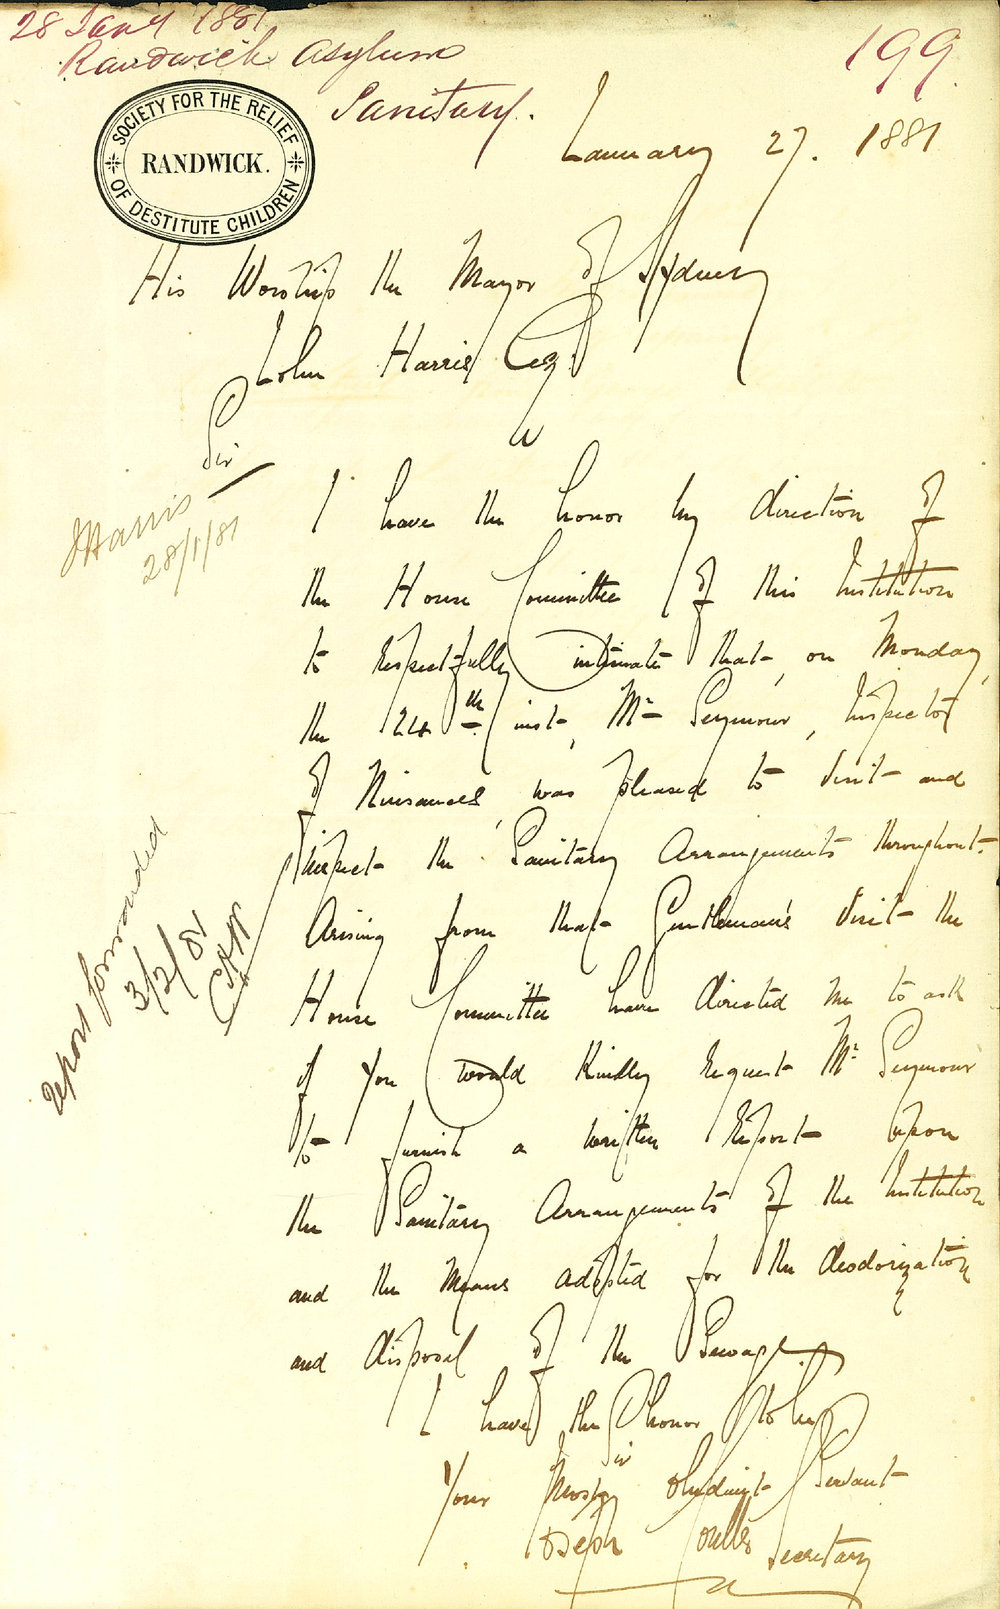 28 Jany 1881
Randwick Asylum
199.
Sanitary.
SOCIETY FOR THE RELIEF
RANDWICK.
OF DESTITUTE CHILDREN
January 27. 1881
His Worship the Mayor of Sydney
John Harris Esq
Sir
J Harris
28/1/81
I have the honor by direction of
the House Committee of this Institution
to respectfully intimate that, on Monday,
the 24th inst, Mr Seymour, Inspector
of Nuisances, was pleased to visit and
inspect the Sanitary Arrangements throughout.
Arising from that Gentleman's visit the
House Committee have directed me to ask
if you would kindly request Mr Seymour
to furnish a written report upon
the Sanitary Arrangements of the Institution
and the means adopted for the deodorization
and disposal of the Sewage.
report forwarded
3/2/81
I have the honor to be,
Sir
Your Most obedient Servant
Joseph
Secretary